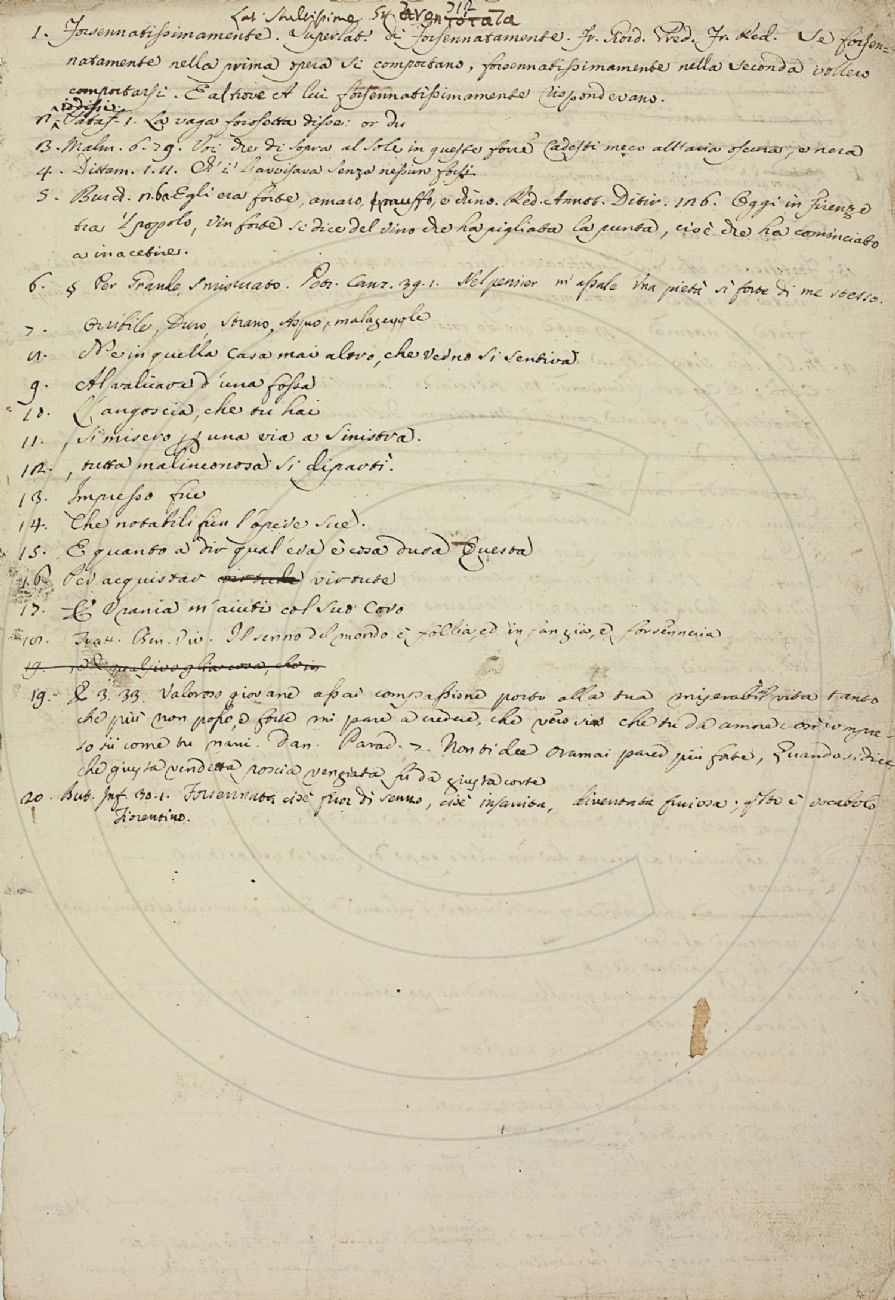 Lat. Stultissime.
1. Forsennatissimamente. Superlat. di Forsennatamente. Fr. Giord. Pred. Fr. Red. Se forsen-
natamente nella prima opera si comportano, forsennatissimamente nella seconda vollero
comportarsi. E altrove A lui forsennatissimamente rispondevano.
2. Pataff. 1. La vaga forosetta disse: or du
3. Malm. 6. 29. Voi che di sopra al Sole in queste forre Cadesti meco all'aria oscura, e nera
4. Dittam. 1. 11. A' i' l'avvisava senza nessun forsi.
5. Burch. 1. 60 Egli era forte, amaro, muffo, e Red. Annot. Ditir. 126. Oggi in Firenze
tra 'l popolo, vin forte si dice del vino che ha pigliata la punta, cioè che ha cominciato
a inacetire.
6. § Per Grande, Smisurato. Petr. Canz. 39. 1. Nel pensier m'assale Una pietà si forte di me stesso.
7. Orribile, Duro, Strano, Aspro, malagevole
8. Nè in quella casa mai altro, che Verno si sentiva
9. Al valicare d'una fossa
10. L'angoscia, che tu hai
11. , Si misero p una via a Sinistra.
12. , tutta malinconosa si dipartì.
13. Impresso fue
14. Che notabili fien l'opere sue.
15. E quanto a dir qual'era è cosa dura Questa
16. Per acquistar virtute
17. E Urania m'aiuti col suo Coro
18. Tratt. Ben. Viv. Il senno del mondo è follia, ed in fanzia, e forsenneria
19. E 3. 33. Valoroso giovane assai compassione porto alla tua miserabil vita tanto
che più non posso, e forte mi pare a credere, che vero sia che tu da amore compre-
so sii come tu narri. Dan. Parad. 7. Non ti dee oramai parer più forte, Quando si dice,
che giusta vendetta poscia vengiata fu da giusta corte
20. But. Inf. 30. 1. Forsennata cioè fuor di senno, cioè insanita, diventata furiosa; q.sto è vocabolo
Fiorentino.